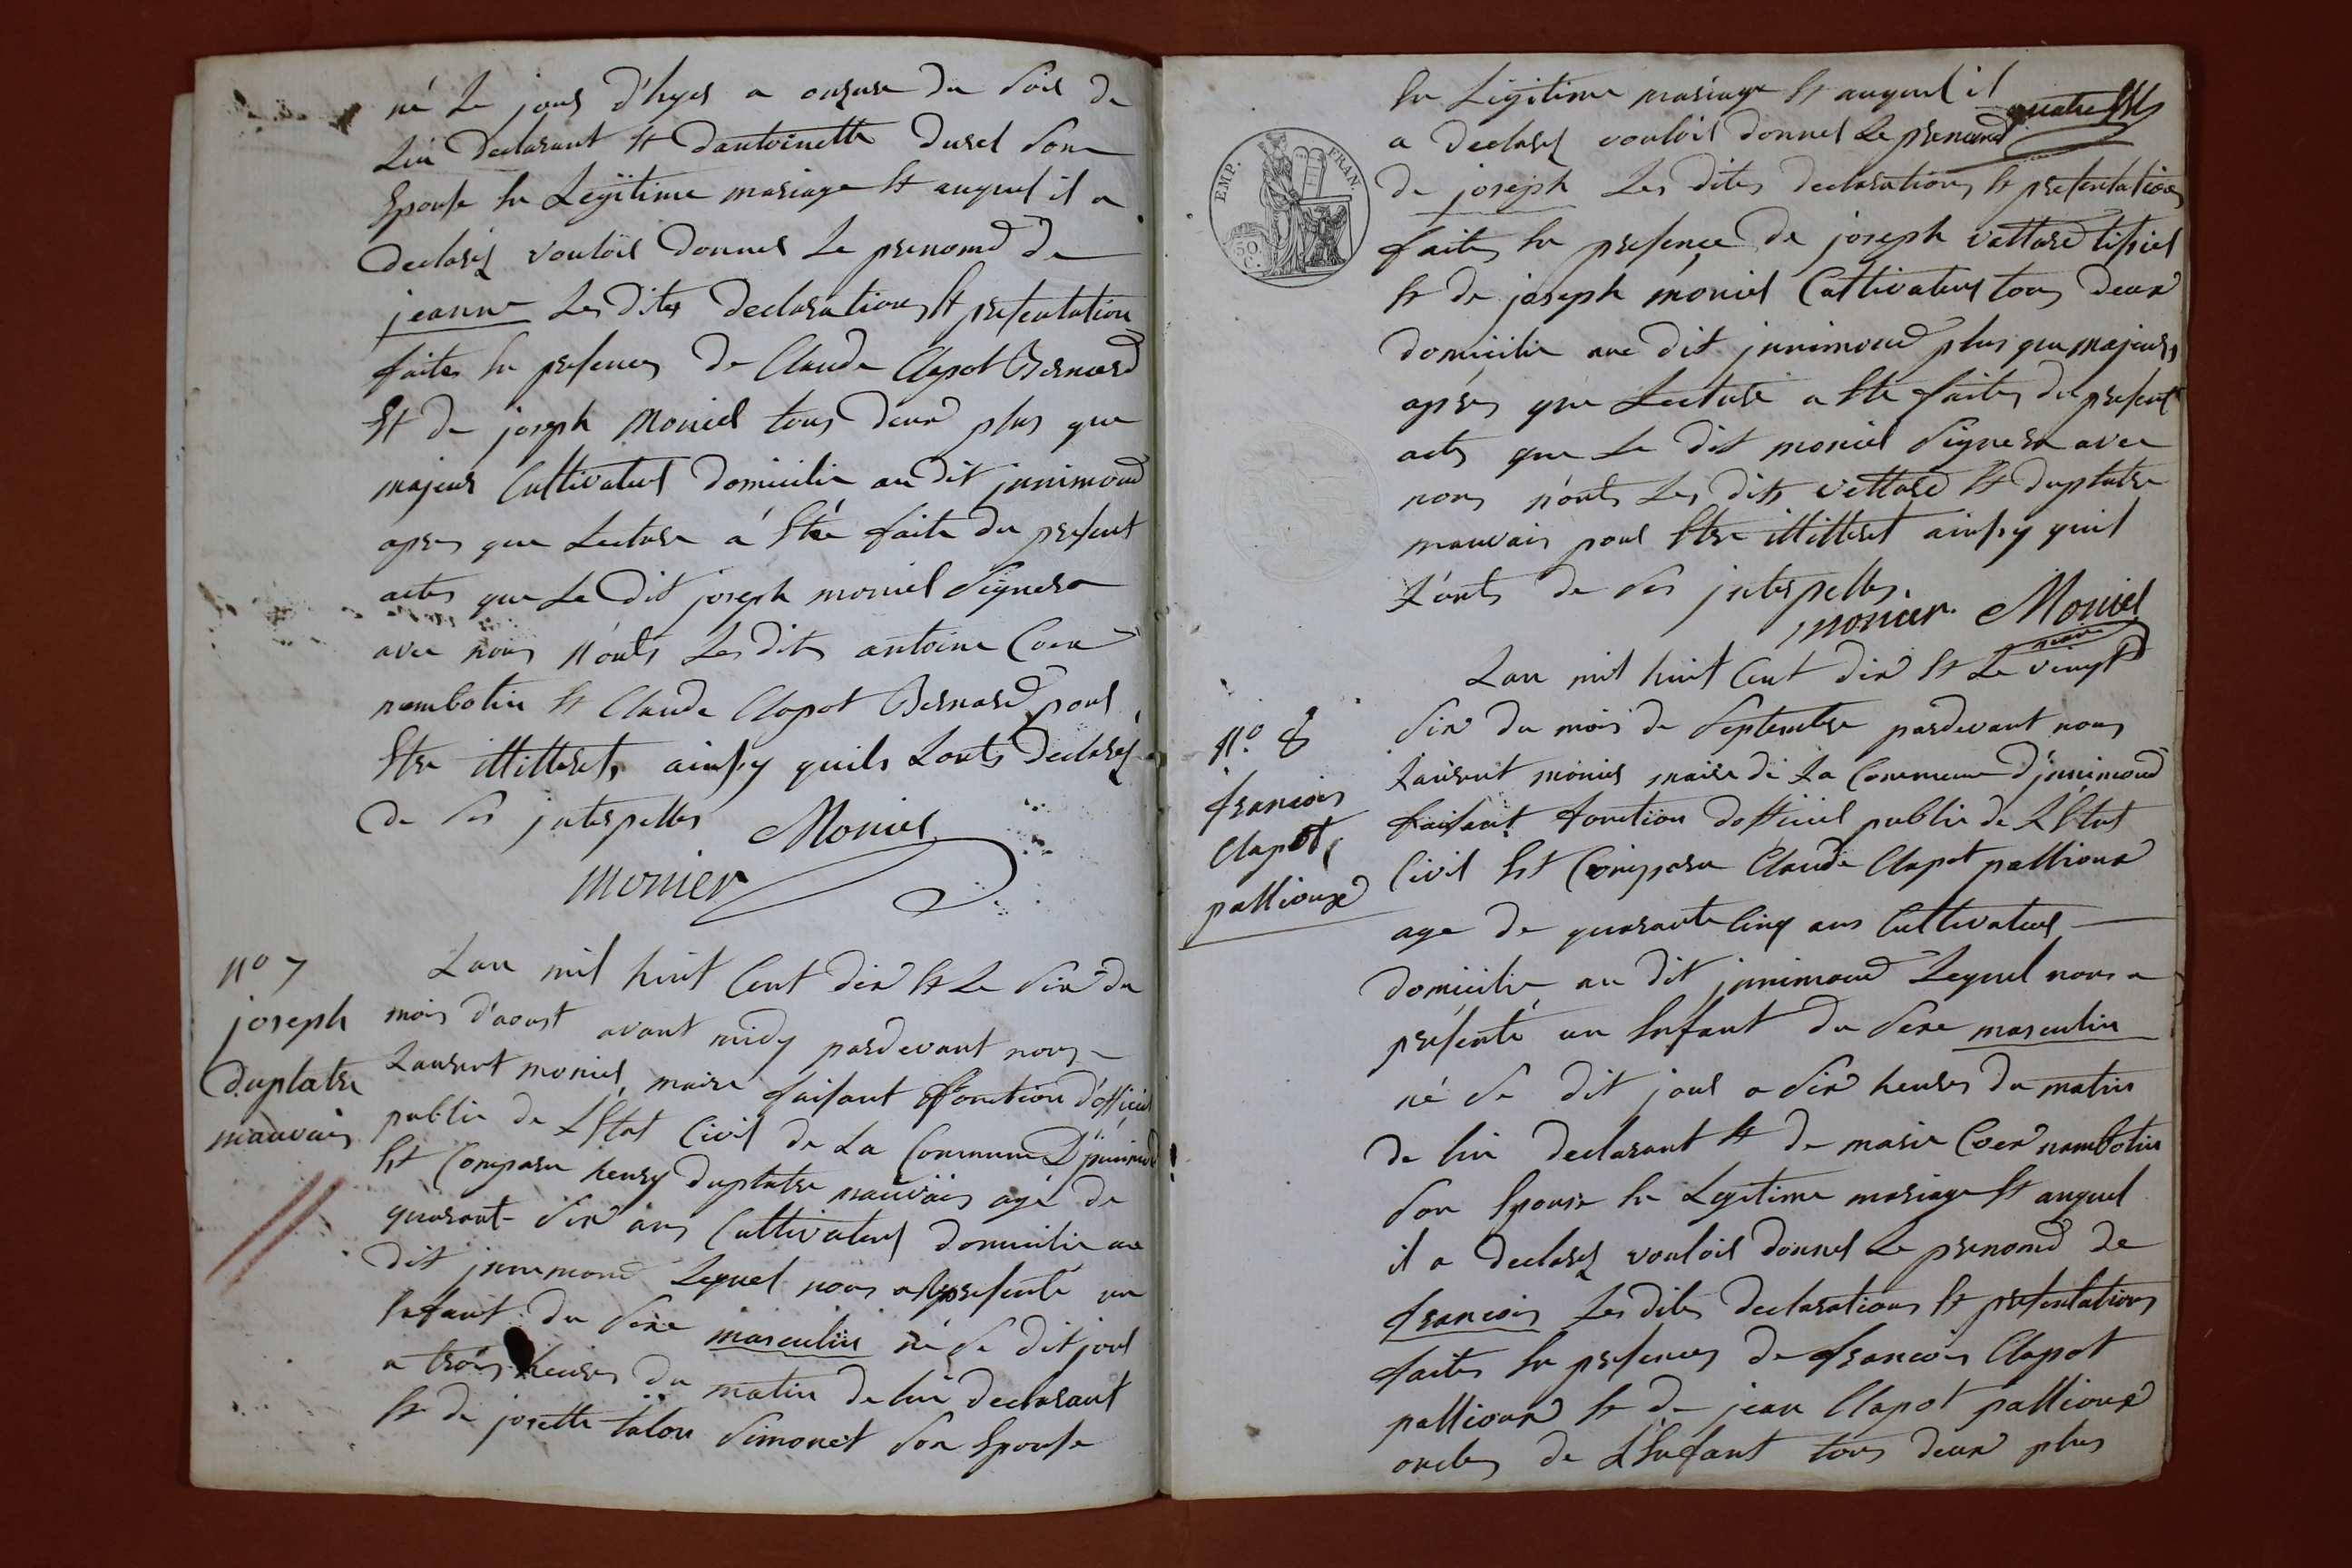 né Le jour d'hyer a onzure du Soir de
Lui declarant Et dantoinette durel Son
Epouse En Legitime mariage Et auquel il a
declarez vouloir donner Le prenomd de
jeanne Les dites declarations Et presentation
faites En presences de Claude Clapot Bernard
Et de joseph Monier tous deux plus que
majeur Cultivateur domicilié au dit jnnimond
apres que Lecture a Eté faite du present
actes que Le dit joseph monier Signera
avec nous N'onts Les dits antoine Coer
nambotin Et Claude Clapot Bernard pour
Etre illitteret, ainsy quils Lonts declarez
de Ses jnterpelles Monier
monier
N° 7
joseph
duplatre
mauvais
Lan mil huit Cent dix Et Le Six du
mois d'aoust avant midy pardevant nous
Laurent monier, maire faisant Fonction d'officier
public de LEtat Civil de La Commune D'jnnimond
Et Comparu henry duplatre mauvais agé de
quarant-Six ans Cultivateur domicilié au
dit jnnimond Lequel nous a presenté un
Enfant du Sexe masculin né Se dit jour
a trois heures du matin de lui declarant
Et de josette talon Simonet Son Epouse
En Legitime mariage Et auquel il
quatre
a declarez vouloir donner Le prenomd
de joseph Les dites declarations Et presentations
faites En presence de joseph vettard tissier
Et de joseph monier Cultivateur tous deux
domicilié au dit jnnimond plus que majeurs
apres que Lecture a Eté faites du present
actes que Le dit monier Signera avec
nous n'onts Les dits vettard Et duplatre
mauvais pour Etre illitteret ainsy quil
L'onts de Ses jnterpelles.
monier. Monier
maire
EMP. FRAN.
50 C.
N° 8
francois
Clapot,
pallioux
Lan mil huit Cent dix Et Le vingt
Six du mois de Septembre pardevant nous
Laurent monier maire de La Commune d'jnnimond
faisant fonction dofficier public de LEtat
Civil Est Comparu Claude Clapot pallioux
age de quarante Cinq ans Cultivateur
domicilié au dit jnnimond Lequel nous a
presenté un Enfant du Sexe masculin
né Se dit jour a Six heures du matin
de lui declarant Et de marie Coer nambotin
Son Epouse En Legitime mariage Et auquel
il a declarez vouloir donner Le prenomd de
francois Les dites declarations Et presentations
faites En presences de francois Clapot
pallioux Et de jean Clapot pallioux
oncles de LEnfant tous deux plus